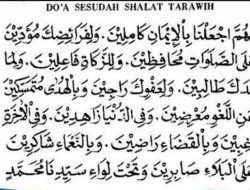 DO'A SESUDAH SHALAT TARAWIH
هُمَّ اجْعَلْنَا بِالْإِيْمَانِ كَامِلِيْنَ. وَلِفَرَائِضِكَ مُؤَدِّيْنَ
لَى الصَّلَوَاتِ مُحَافِظِيْنَ. وَلِلزَّكَاةِ فَاعِلِيْنَ. وَلِمَا
دَكَ طَالِبِيْنَ. وَلِعَفْوِكَ رَاجِيْنَ وَبِالْهُدَى مُتَمَسِّكِيْنَ
عَنِ اللَّغْوِ مُعْرِضِيْنَ. وَفِى الدُّنْيَا زَاهِدِيْنَ. وَفِى الْأٓ
غِبِيْنَ وَبِالْقَضَاءِ رَاضِيْنَ. وَبِالنَّعْمَاءِ شَاكِرِيْنَ
لَى الْبَلَاءِ صَابِرِيْنَ وَتَحْتَ لِوَاءِ سَيِّدِنَا مُحَمَّدٍ